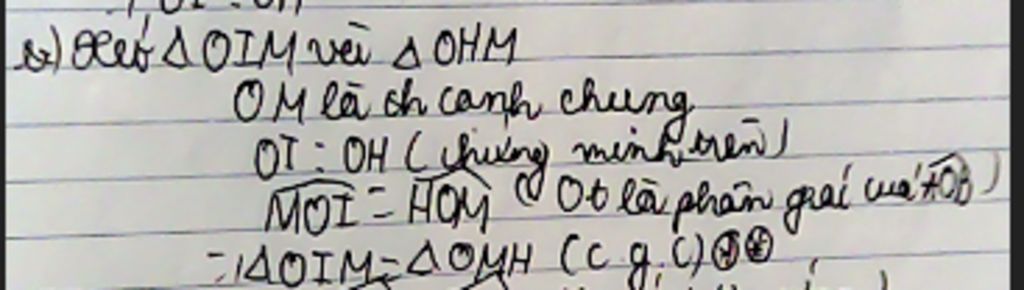 b) Xét Δ OIM và Δ OHM
OM là ch cạnh chung
OI = OH (chứng minh trên)
MOI = HOM (Ot là phân giác của AOB)
=> ΔOIM = ΔOMH (c.g.c)